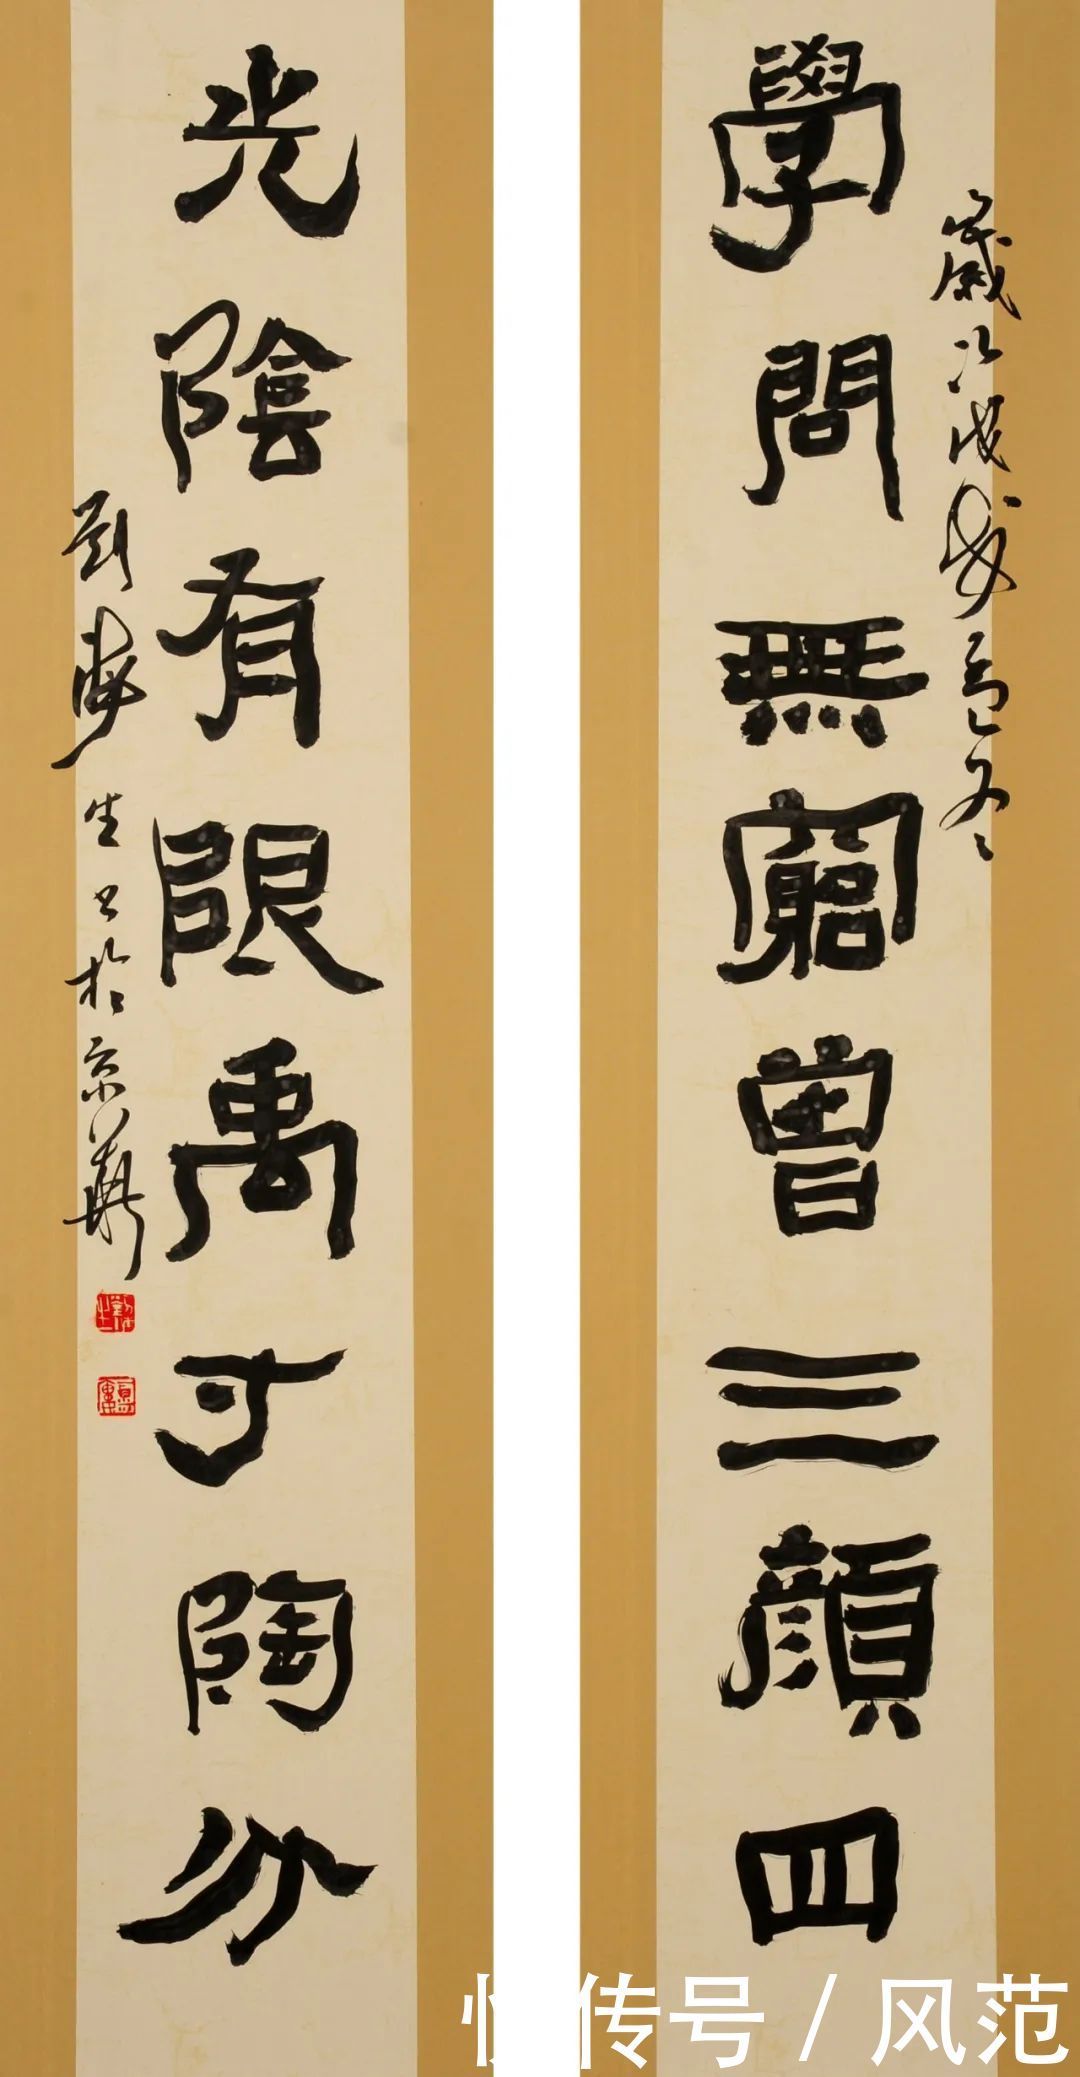 學問無窮曾三顏四
歲次戊戌孟冬
光陰有限禹寸陶分
劉生书於京華
快传号 / 风范